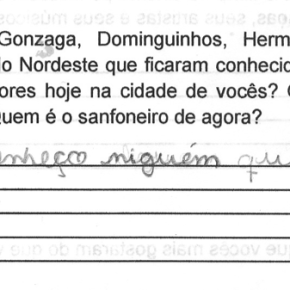 Gonzaga, Dominguinhos, Herm
io Nordeste que ficaram conhecid
ores hoje na cidade de vocês?
Quem é o sanfoneiro de agora?
nheço niguém qu